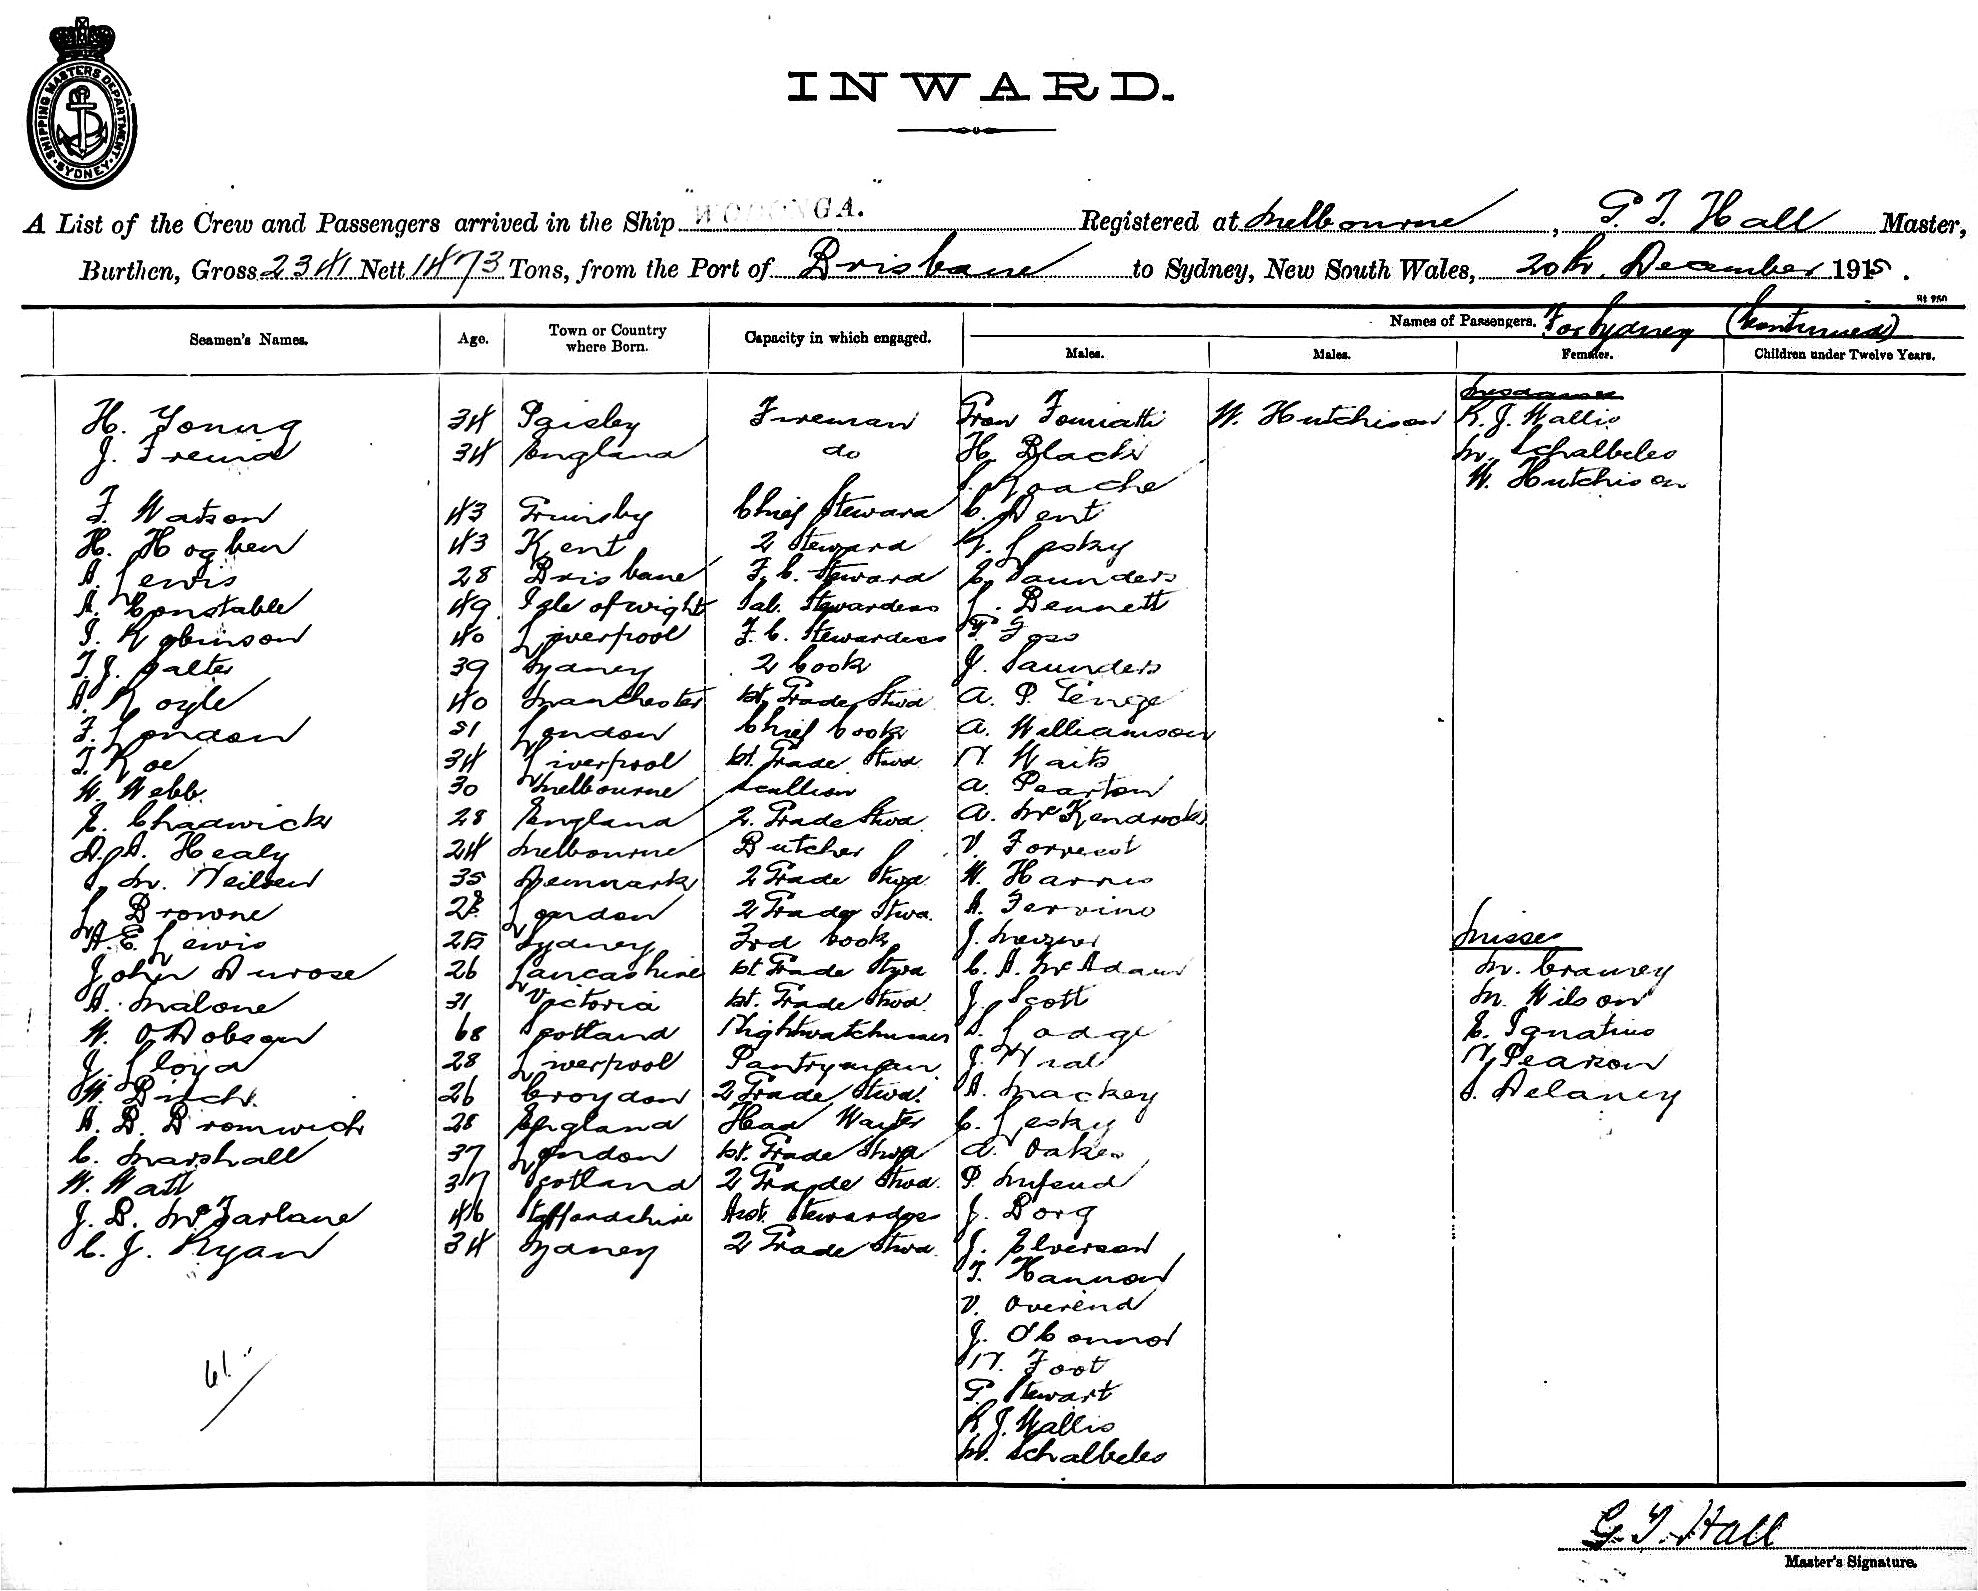 SHIPPING MASTERS DEPARTMENT
SYDNEY
INWARD.
A List of the Crew and Passengers arrived in the Ship "WODONGA." Registered at Melbourne, G. T. Hall Master,
Burthen, Gross 2341 Nett 1473 Tons, from the Port of Brisbane to Sydney, New South Wales, 20th December 1915.
Names of Passengers. For Sydney (Continued)
Seamen's Names. Age. Town or Country where Born. Capacity in which engaged. Males. Males. Females. Children under Twelve Years.
Mesdames
H. Young 34 Paisley Fireman Fran W. Hutchison R. J. Wallis
J. Freind 34 England do H. Black M. Schalbeles
S. Roache W. Hutchison
F. Watson 43 Grimsby Chief Steward C. Dent
H. Hogben 43 Kent 2 Steward Lesky
A. Lewis 28 Brisbane F. C. Steward E. Saunders
A. Constable 49 Isle of Wight Sal. Stewardess J. Bennett
I. Robinson 40 Liverpool F. C. Stewardess F. Foss
T. J. Salter 39 Sydney 2 Cook J. Saunders
A. Royle 40 Manchester 1st. Grade Stwd A. P.
F. London 51 London Chief Cook A. Williamson
T. Roe 34 Liverpool 1st. Grade Stwd N. Waits
W. Webb. 30 Melbourne Scullion A. Pearton
E. Chadwick 28 England 2. Grade Stwd. A. McKendrocks
A. A. Healy 24 Melbourne Butcher V. Forrest
L. M. Neilsen 35 Denmark 2 Grade Stwd. W. Harris
L. Browne 28 London 2 Grade Stwd. A. Fervino
A. E. Lewis 25 Sydney 3rd Cook J. Misses
John Durose 26 Lancashire 1st Grade Stwd C. A. McAdam M.
A. Malone 31 Victoria 1st. Grade Stwd. J. Scott M. Wilson
W. O. Dobson 68 Scotland Nightwatchman S. Lodge E. Ignatius
J. Lloyd 28 Liverpool Pantryman J. N. Pearson
W. Birch. 26 Croydon 2 Grade Stwd. A. Mackey S. Delaney
A. B. Bromwich 28 England Head Waiter C. Lesky
C. Marshall 37 London 1st. Grade Stwd A. Oakes
W. Watt 37 Scotland 2 Grade Stwd. P. Mifsud
J. B. McFarlane 46 Staffordshire Asst. Stewardess J. Borg
C. J. Ryan 34 Sydney 2 Grade Stwd. J. Elverson
T. Hannon
V. Overend
J. O'Connor
N. Foot
G. Stewart
R. J. Wallis
M. Schalbeles
61
G. T. Hall
Master's Signature.